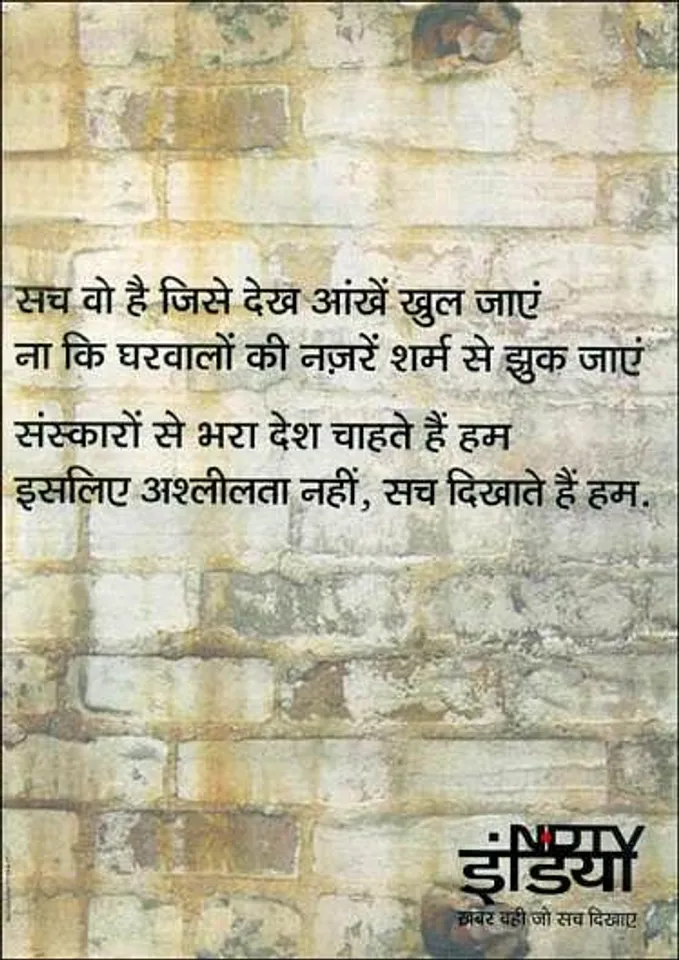 सच वो है जिसे देख आंखें खुल जाएं
ना कि घरवालों की नज़रें शर्म से झुक जाएं
संस्कारों से भरा देश चाहते हैं हम
इसलिए अश्लीलता नहीं, सच दिखाते हैं हम.
NDTV
इंडिया
ख़बर वही जो सच दिखाए